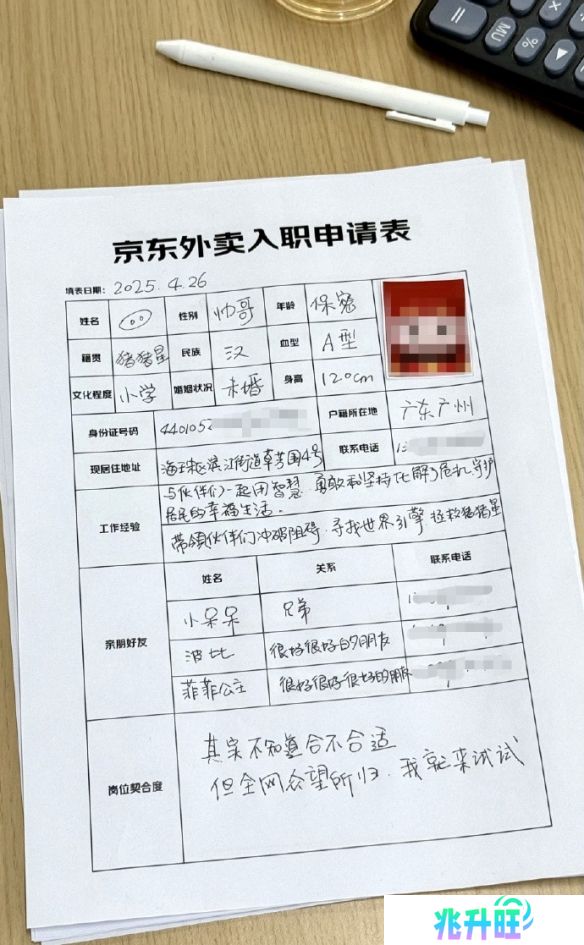 = MU % ▼
京东外卖入职申请表
填表日期: 2025.4.26
姓名 性别 帅哥 年龄 保密
籍贯 猪猪星 民族 汉 血型 A型
文化程度 小学 婚姻状况 未婚 身高 120cm
身份证号码 440105 户籍所在地 广东广州
现居住地址 海珠区滨江街道草芳围4号 联系电话 1
工作经验
与伙伴们一起用智慧、勇敢和坚持化解危机,守护
居民的幸福生活。
带领伙伴们冲破阻碍,寻找世界引擎,拯救猪猪星
亲朋好友
姓名 关系 联系电话
小呆呆 兄弟
波比 很好很好的朋友
菲菲公主 很好很好很好的朋友
岗位契合度
其实不知道合不合适
但全网众望所归,我就来试试
兆升旺